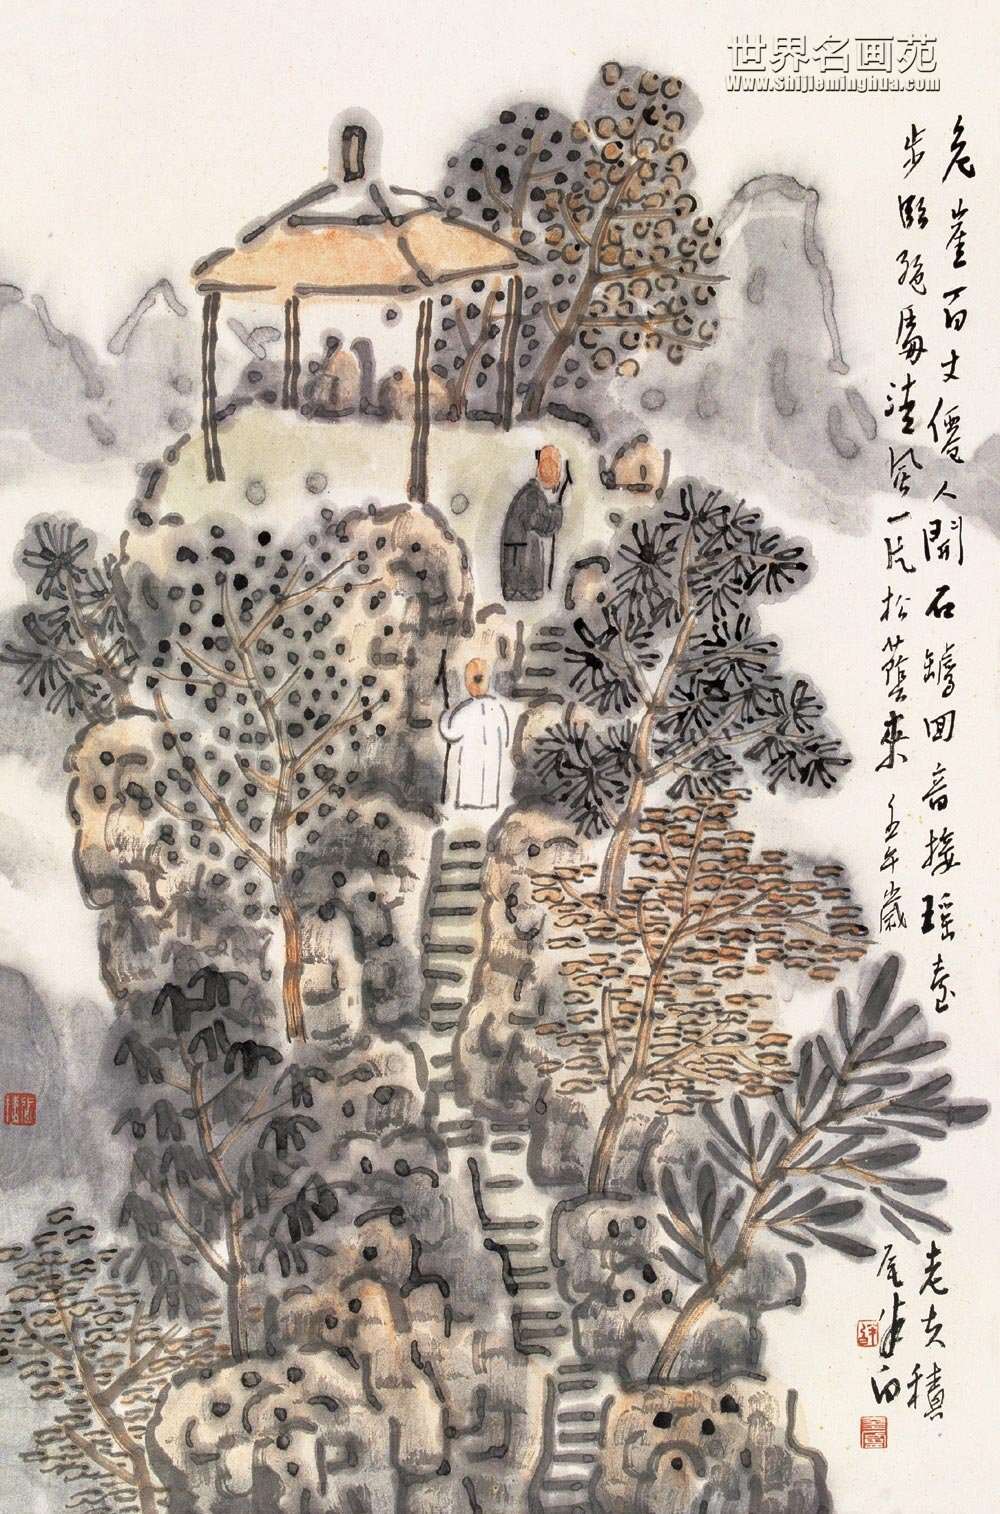 世界名画苑
Www.Shijieminghua.com
危崖百丈仙人開石蹬回音接瑶台
步臨绝處清風一片松蔭來 壬午歲
老夫積
尾 白